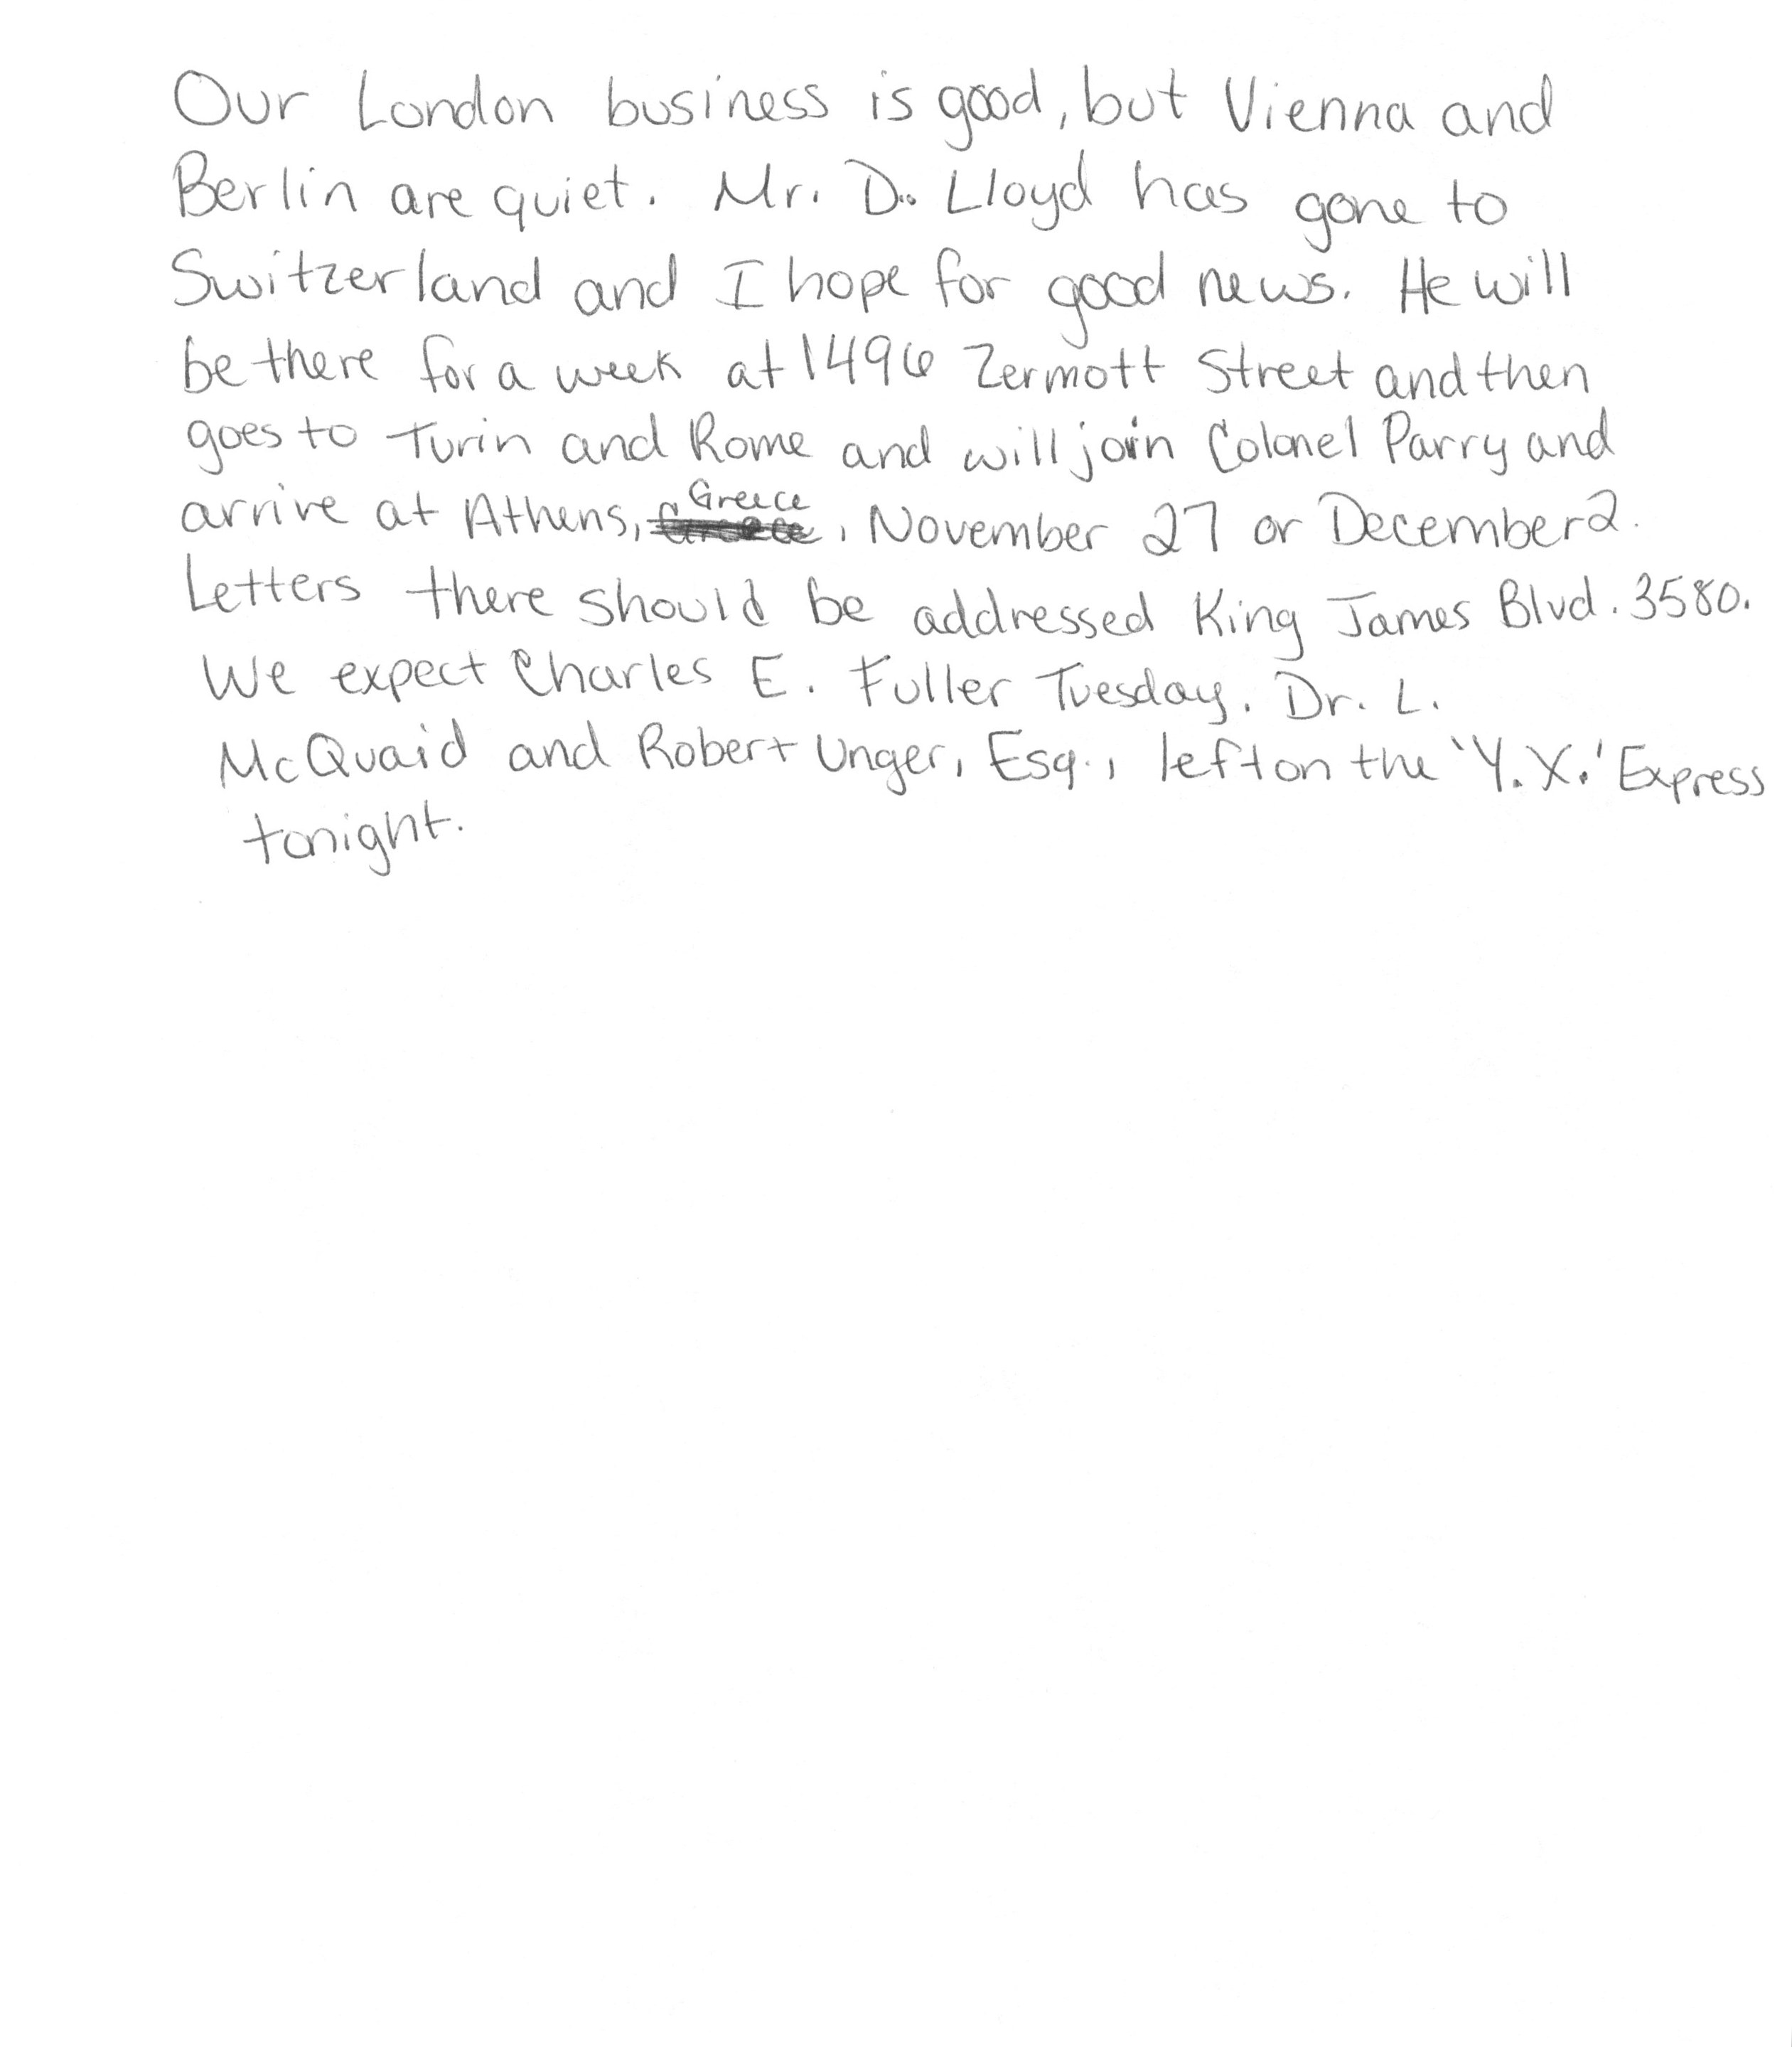 Our London business is good, but Vienna and
Berlin are quiet. Mr. D. Lloyd has gone to
Switzerland and I hope for good news. He will
be there for a week at 1496 Zermott Street and then
goes to Turin and Rome and will join Colonel Parry and
arrive at Athens, Greece, November 27 or December 2.
Letters there should be addressed King James Blvd. 3580.
We expect Charles E. Fuller Tuesday. Dr. L.
McQuaid and Robert Unger, Esq., left on the 'Y.X.' Express
tonight.